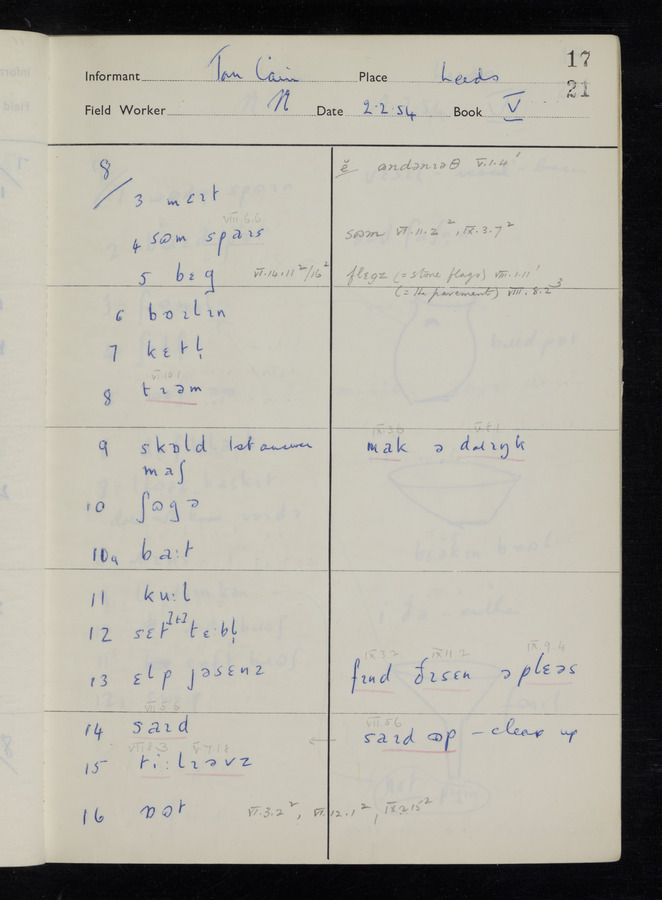 17
21
Informant Tom Cain Place Leeds
Field Worker N Date 2.2.54 Book V
8/
3 mɛɪt
VII.6.6
4 sɵm spaɪs
5 bɛg VI.14.11² /16²
6 bɒɪlɪn
7 kɛtl̩
VI.10.1
8 tɹəm
9 skɒld 1st answer
maʃ
10 ʃɵgə
10a ba:t
11 ku:l
12 sɛt [t] tɛ:bl̩
13 ɛlp jəsɛnz
VII.5.6
14 saɪd
VII.8.3 V.7.18
15 ti:lɪəvz
16 nɒt VI.3.2², VI.12.1², IX.2.15²
ĕ andənɪəθ V.1.4'
səm VI.11.2², IX.3.7²
flɛgz (= stone flags) VIII.1.11'
(= the pavement) VIII.8.2³
IX.3.6 V.6.1
mak ə dɒɪɪʃk
IX.3.2 IX.11.2 IX.9.4
fɪnd ðɪsɛn ə plɛəs
VII.5.6
saɪd ɵp – clear up